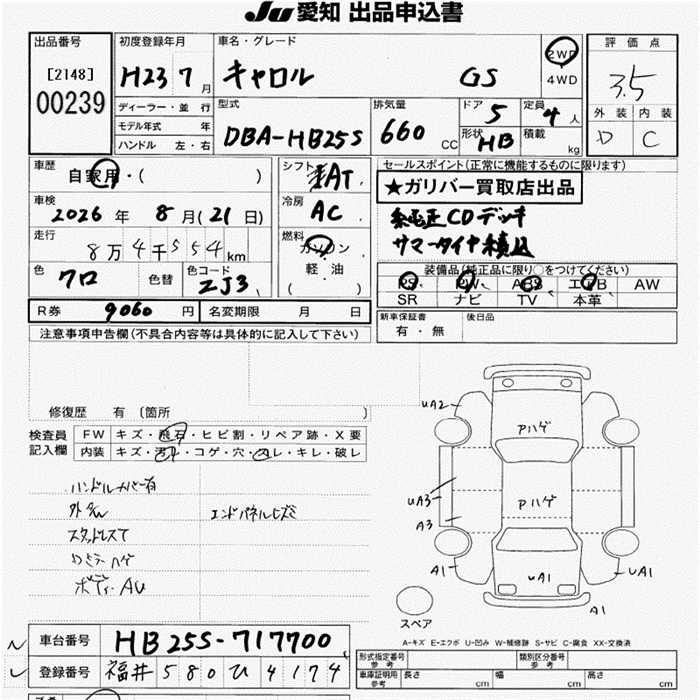 JU 愛知 出品申込書
出品番号
[2148]
00239
初度登録年月
H23 7 月
車名・グレード
キャロル GS
2WD
4WD
評価点
3.5
外装 内装
D C
ディーラー・並行
モデル年式 年
ハンドル 左・右
型式
DBA-HB25S
排気量
660 CC
ドア 5
定員 4 人
形状 HB
積載 kg
車歴
自家用・( )
シフト
AT
セールスポイント(正常に機能するものに限ります)
★ガリバー買取店出品
純正CDデッキ
サマータイヤ積込
車検
2026 年 8 月(21 日)
冷房
AC
走行
8万4千554 km
燃料
ガソリン
軽・油
( )
色
クロ
色替
色コード
ZJ3
装備品(純正品に限り○をつけてください)
PS PW ABS エアB AW
SR ナビ TV 本革
R券 9060 円
名変期限 月 日
新車保証書
有・無
後日品
注意事項申告欄(不具合内容等は具体的に記入して下さい)
修復歴 有 〔箇所 〕
検査員
記入欄
FW キズ・飛石・ヒビ割・リペア跡・X要
内装 キズ・汚れ・コゲ・穴・スレ・キレ・破レ
ハンドルカバー有
スタッドレスT
ボディ・AU
uA2
アハゲ
uA3
A3
Pハゲ
A1
uA1
uA1
A1
スペア
A-キズ E-エクボ U-凹み W-補修跡 S-サビ C-腐食 XX-交換済
車台番号 HB25S-717700
登録番号 福井 580 ひ 4174
形式指定番号
参考
類別区分番号
参考
車庫証明用
参考
長さ cm 幅 cm 高さ cm